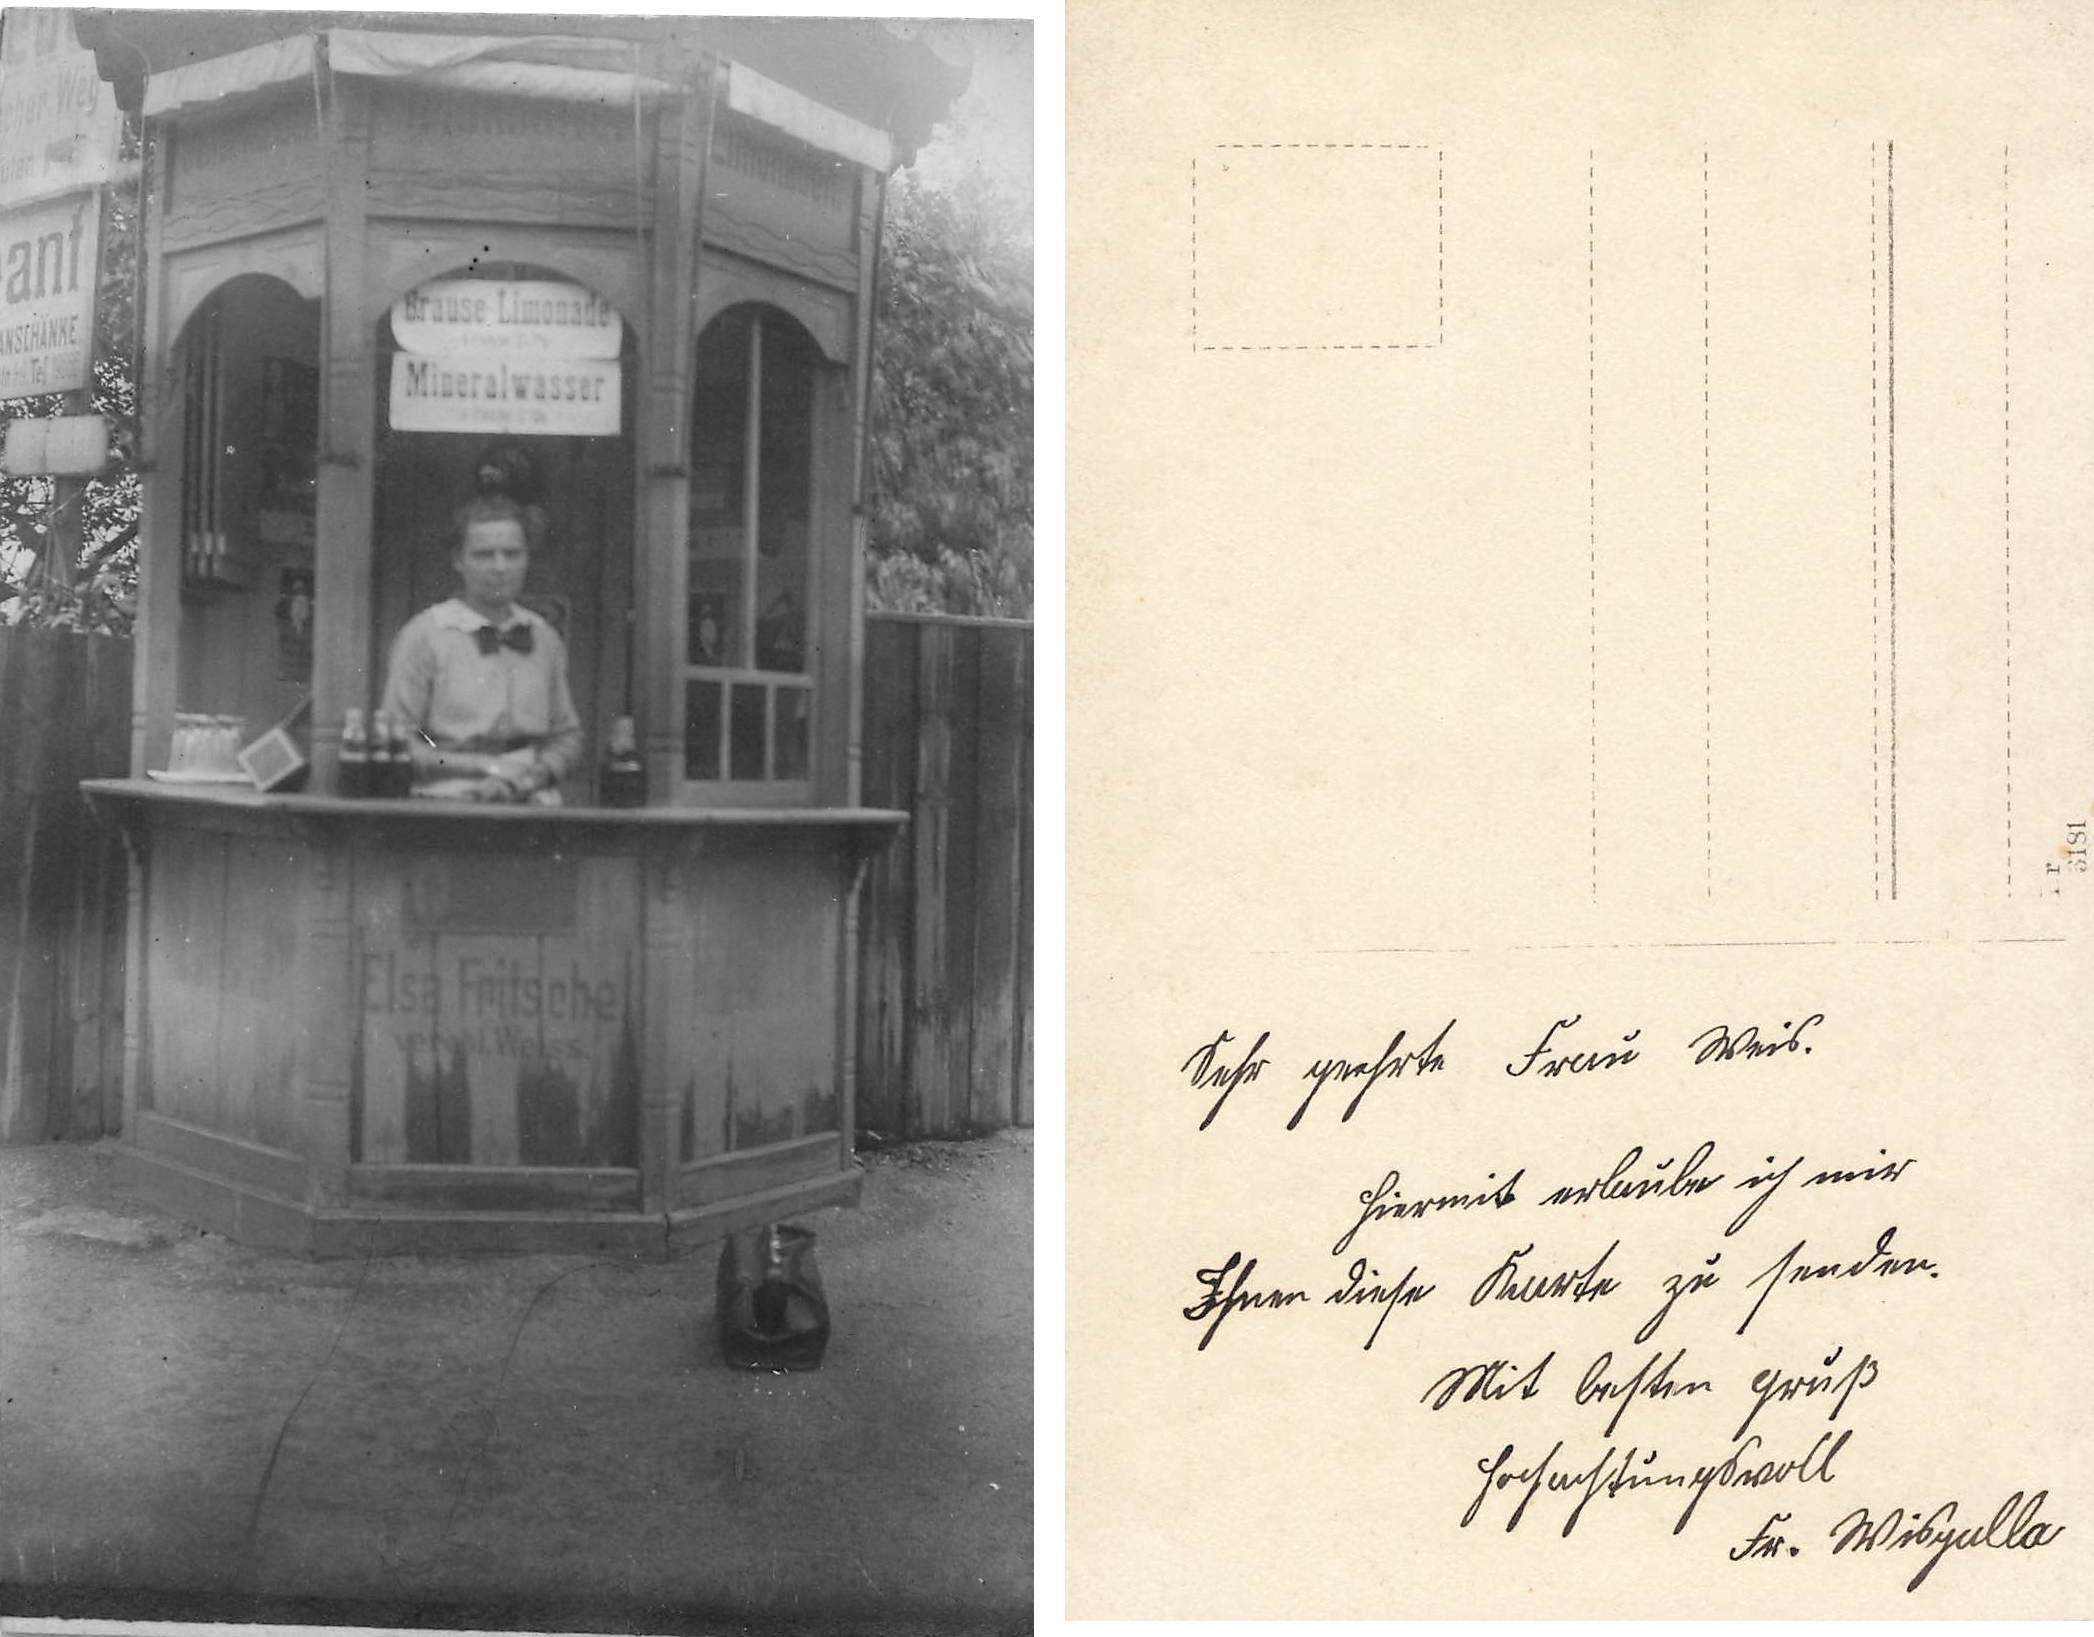 cher Weg
anf
ANSCHÄNKE
Tel
Brause Limonade
Mineralwasser
Elsa Fritsche
verehl. Weiss.
Sehr geehrte Frau Weis.
hiermit erlaube ich mir
Ihnen diese Karte zu senden.
Mit besten gruß
hochachtungsvoll
Fr. Wisgalla